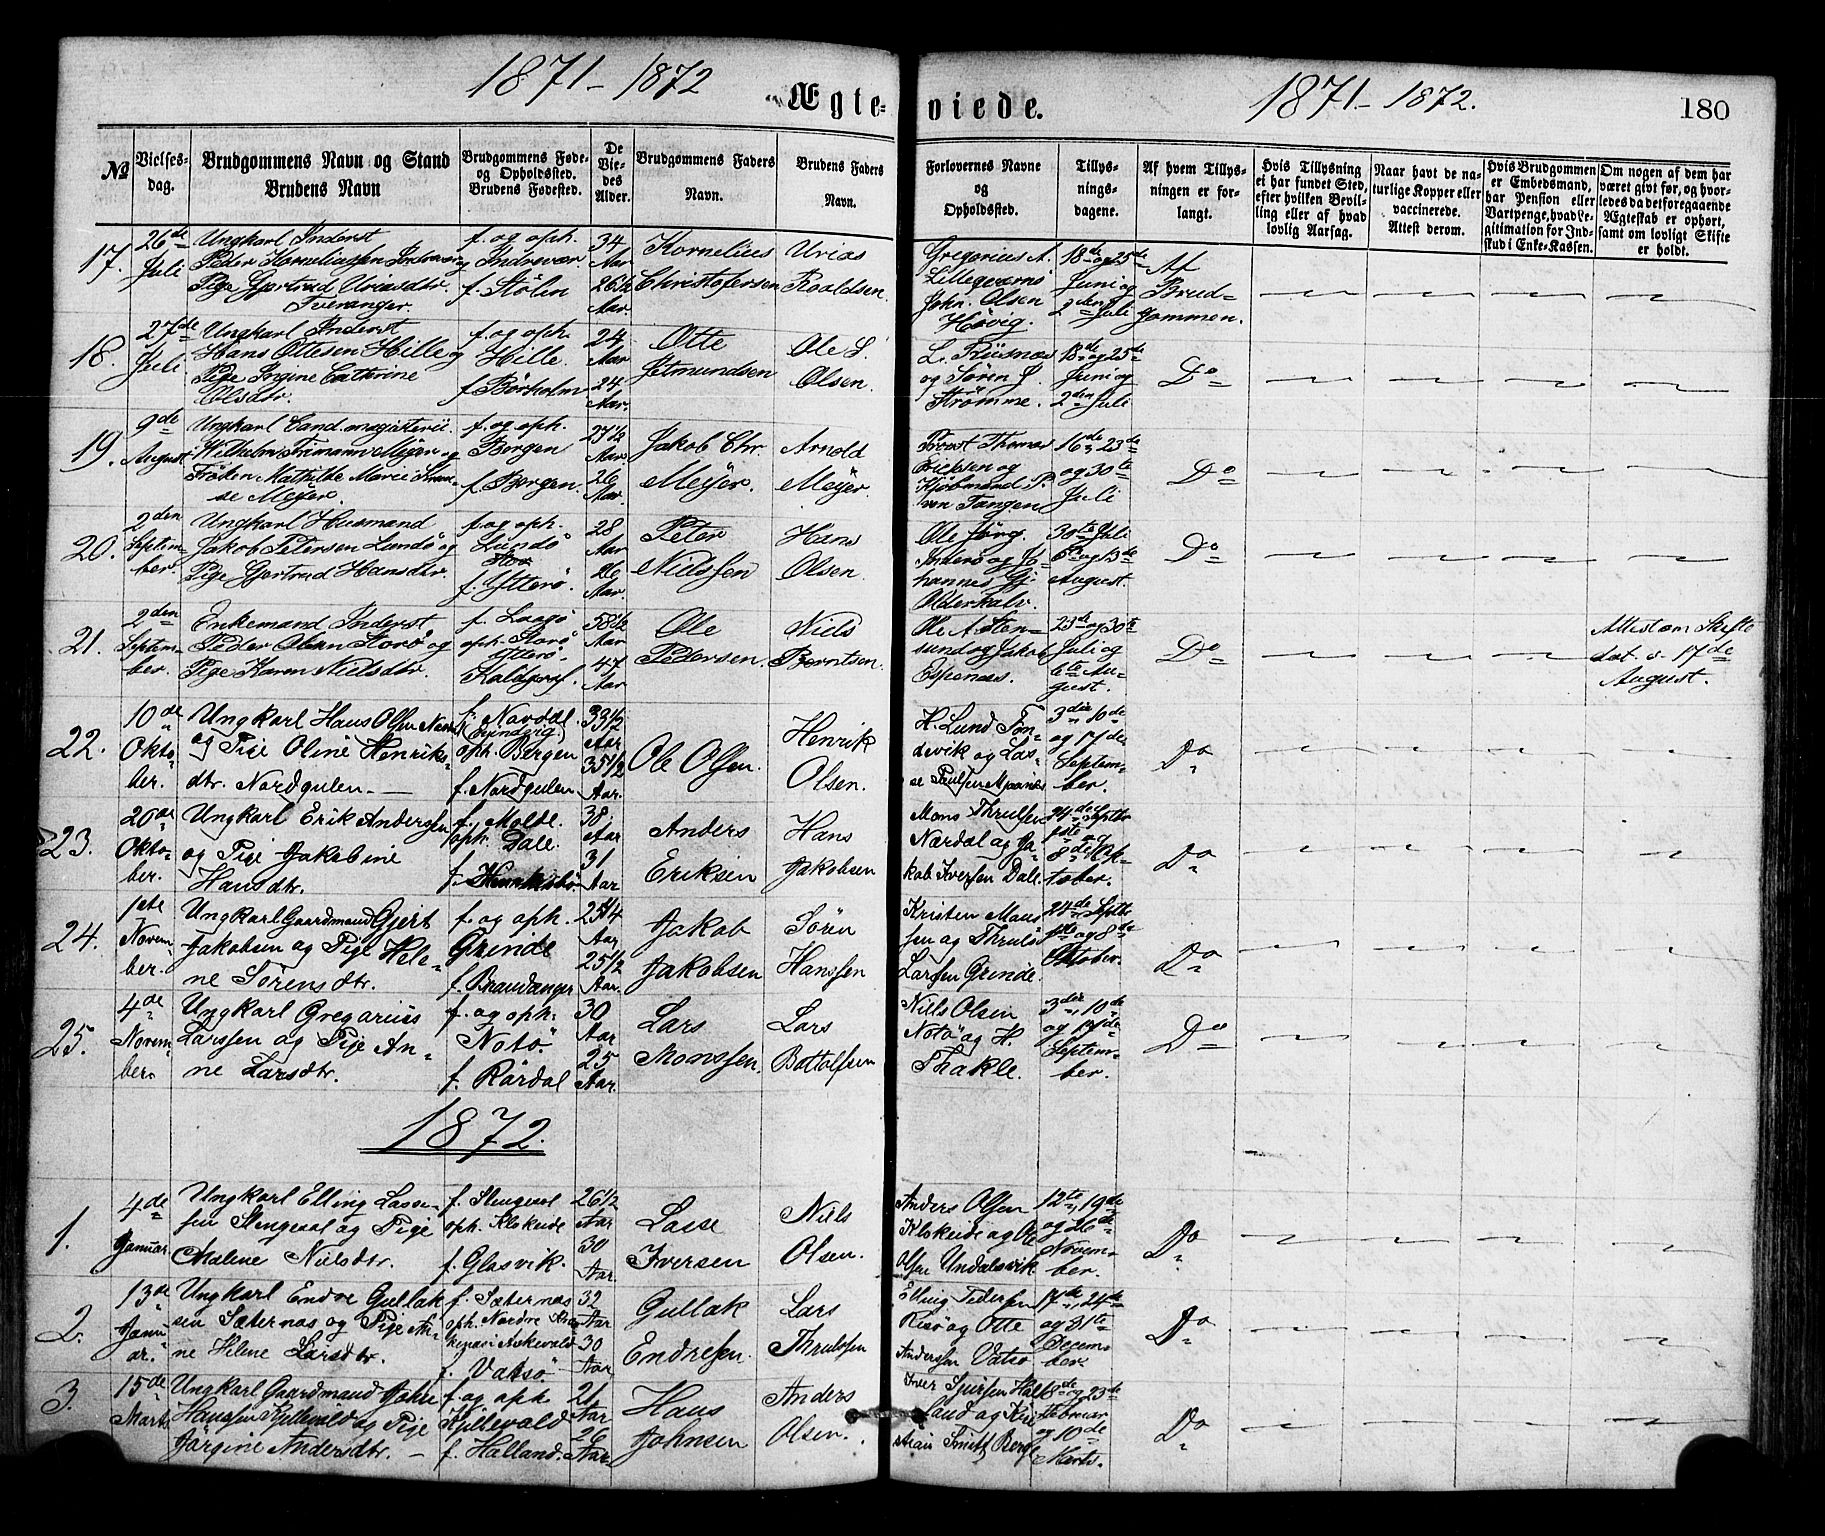 1871-1872
Ægte-
viede.
1871-1872.
180
No
Vielses-
dag.
Brudgommens Navn og Stand
Brudens Navn
Brudgommens Føde-
og Opholdssted.
Brudens Fødested.
De
Vie-
des
Alder.
Brudgommens Faders
Navn.
Brudens Faders
Navn.
Forlovernes Navne
og
Opholdssted.
Tillys-
nings-
dagene.
Af hvem Tillys-
ningen er for-
langt.
Hvis Tillysning
ei har fundet Sted,
efter hvilken Bevil-
ling eller af hvad
lovlig Aarsag.
Naar havt de na-
turlige Kopper eller
vaccinerede.
Attest derom.
Hvis Brudgommen
er Embedsmand,
har Pension eller
Vartpenge, hvad Le-
gitimation for Ind-
skud i Enke-Kassen.
Om nogen af dem har
været givt før, og hvor-
ledes da det foregaaende
Ægteskab er ophørt,
samt om lovligt Skifte
er holdt.
17.
26de
Juli
Ungkarl Inderst
Peder Korneliussen Indrevær og
Pige Gjertrud Uriasdtr.
Tveranger.
f. og oph.
Indrevær.
f. Stølen
34
Aar
26 1/2
Aar.
Kornelius
Christofersen
Urias
Roaldsen.
Gregorius A.
John. Olsen
Høvig.
18de og 25de
Juni og
2den Juli
Af
Brud-
gommen.
18.
27de
Juli
Ungkarl Inderst
Hans Ottesen Hille og
Pige Ingine Cathrine
Olsdtr.
f. og oph.
Hille.
f. Børholm
24
Aar
24
Aar.
Otte
Jetmundsen
Ole L.
Olsen.
L. Risnæs
og Søren J.
Strømme.
18de og 25de
Juni og
2den Juli
Do
19.
9de
August
Ungkarl Cand. magisterii
Wilhelm Frimann Meyer og
Frøken Mathilde Marie
se Meyer.
f. og oph.
Bergen
f. Bergen.
27 1/2
Aar
26
Aar.
Jakob Chr.
Meyer.
Arnold
Meyer.
Provst Thomas
Erichsen og
Kjøbmand P.
von Tangen
16de, 23de
og 30te
Juli
Do
20.
2den
Septem-
ber.
Ungkarl Husmand
Jakob Petersen Lundø og
Pige Gjertrud Hansdtr.
f. og oph.
Lundø
f. Ytterø.
28
Aar
26
Aar.
Peter
Nielssen
Hans
Olsen.
Ole Jørg.
Inderø og Jo-
hannes Gj.
Olderkalv.
30te Juli
6te og 13de
August.
Do
21.
2den
Septem-
ber.
Enkemand Inderst
Peder Olsen Storø og
Pige Karen Nielsdtr.
f. Laagø
oph. Storø
Ytterø.
58 1/2
Aar
47
Aar
Ole
Pedersen.
Niels
Berntsen.
Ole A. Sten-
sund og Jakob
Espenæs.
23de og 30te
Juli og
6te Au-
gust.
Do
Attest om Skifte
dat. s. 17de
August.
22.
10de
Okto-
ber.
Ungkarl Hans Olsen
og Pige Oline Henriks-
dtr. Nordgulen. —
f. Nordal
(Evindvig)
oph. Bergen
f. Nordgulen
33 1/2
Aar
35 1/2
Aar.
Ole Olsen.
Henrik
Olsen.
H. Lund Ton-
devik og Las-
se
3die, 10de
og 17de
Septem-
ber.
Do
23.
20de
Okto-
ber.
Ungkarl Erik Anderssen
og Pige Jakobine
Hansdtr.
f. Molde.
oph. Dale.
38
Aar
31
Aar
Anders
Eriksen
Hans
Jakobsen
Mons Thrulsen
Nærdal og Ja-
kob Iversen Dale.
24de Septbr
1ste og
8de Ok-
tober.
Do
24.
1ste
Novem-
ber.
Ungkarl Gaardmand Gjert
Jakobsen og Pige Hele-
ne Sørensdtr.
f. og oph.
Grinde
f. Brandanger
25 1/4
Aar
25 1/2
Aar.
Jakob
Jakobsen
Søren
Hanssen
Kristen Mons
sen og Thruls
Larsen Grinde.
24de Septbr
1ste og 8de
Oktober.
Do
25.
4de
Novem-
ber.
Ungkarl Gregorius
Larssen og Pige An-
ne Larsdtr.
f. og oph.
Notø.
f. Rørdal
30
Aar
25
Aar.
Lars
Monssen.
Lars
Bottolfsen
Niels Olsen
Notø og H.
Thakle.
3die, 10de
og 17de
Septem-
ber.
Do
1872.
1.
4de
Januar.
Ungkarl Elling Lasse-
sen Stengesal og Pige
Malene Nielsdtr.
f. Stengesal
oph. Klokeide
f. Glasvik.
26 1/2
Aar
30
Aar.
Lasse
Iversen
Niels
Olsen.
Anders Olsen
Klokeide og Ole
Olsen Undalsvik
12te, 19de
og 26de
Novem-
ber.
Do
2.
13de
Janu-
ar.
Ungkarl Endre Gullak
sen Sæternæs og Pige An-
ne Helene Larsdtr.
f. Sæternæs
oph. Nordre
i Askevold
f. Vatsø.
32
Aar
30
Aar
Gullak
Endresen.
Lars
Thrulssen
Elling Pedersen
Risø og Otte
Anderssen Vatsø
17de, 24de
og 31te
Decem-
ber.
Do
3.
15de
Marts
Ungkarl Gaardmand John
Hanssen Kjellevold og Pige
Jørgine Andersdtr. —
f. og oph.
Kjellevold
f. Halland.
21
Aar
26
Aar
Hans
Johnsen
Anders
Olsen.
Iver Sjursen Hal-
land og Kri-
stian Smith Berge
18de og 23de
Februar
og 10de
Marts.
Do